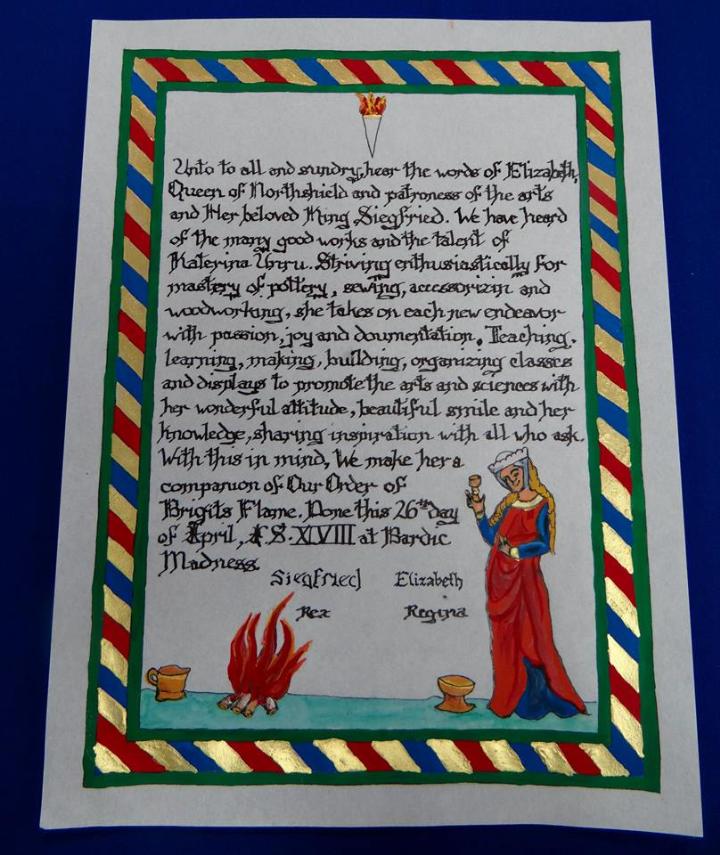 Unto to all and sundry, hear the words of Elizabeth,
Queen of Northshield and patroness of the arts
and Her beloved King Siegfried. We have heard
of the many good works and the talent of
Katerina Unru. Striving enthusiastically for
mastery of pottery, sewing, accessorizin and
woodworking, she takes on each new endeavor
with passion, joy and doumentation. Teaching,
learning, making, building, organizing classes
and displays to promote the arts and sciences with
her wonderful attitude, beautiful smile and her
knowledge, sharing inspiration with all who ask.
With this in mind, We make her a
companion of Our Order of
Brigits Flame. Done this 26th day
of April, A.S. XLVIII at Bardic
Madness.
Siegfried Elizabeth
Rex Regina